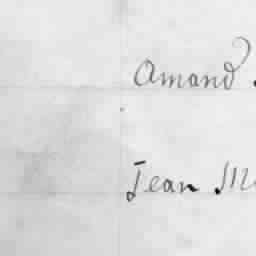 Amand
Jean M